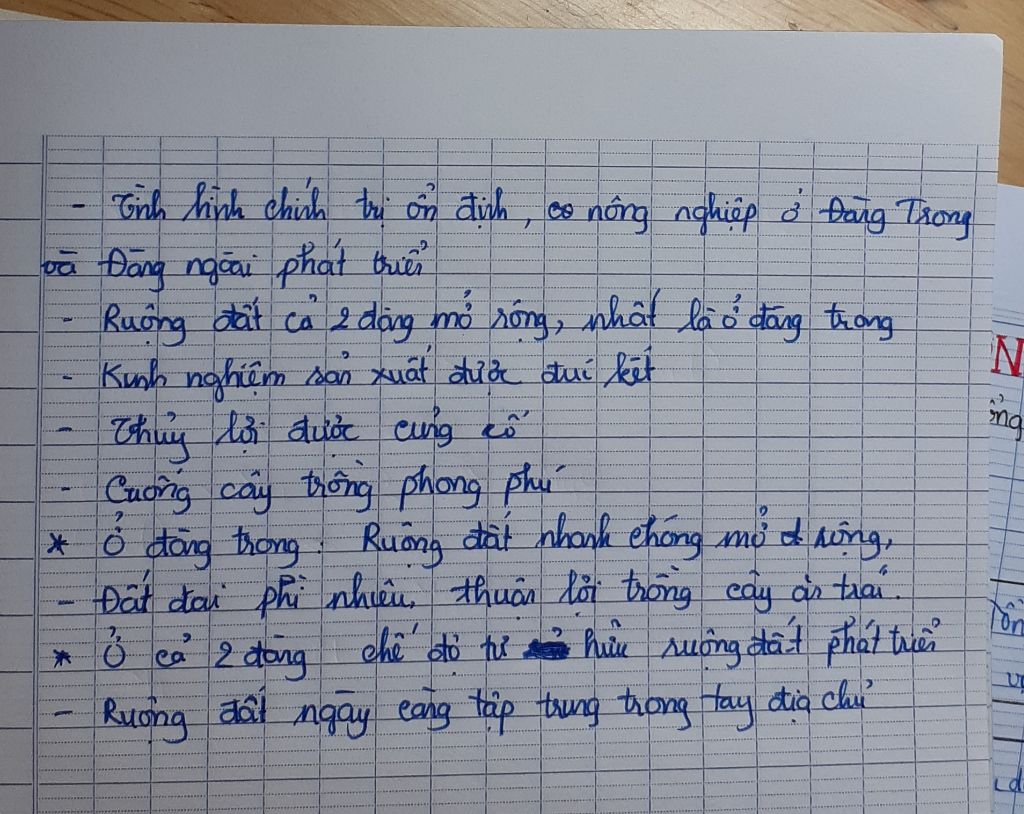 - Tình hình chính trị ổn định, nông nghiệp ở Đàng Trong
và Đàng ngoài phát triển
- Ruộng đất cả 2 đàng mở rộng, nhất là ở đàng trong
- Kinh nghiệm sản xuất được đúc kết
- Thủy lợi được củng cố
- Cuống cây trồng phong phú
* Ở đàng trong: Ruộng đất nhanh chóng mở rộng,
- Đất đai phì nhiêu, thuận lợi trồng cây ăn trái.
* Ở cả 2 đàng chế độ tư hữu ruộng đất phát triển
- Ruộng đất ngày càng tập trung trong tay địa chủ
N
ồng